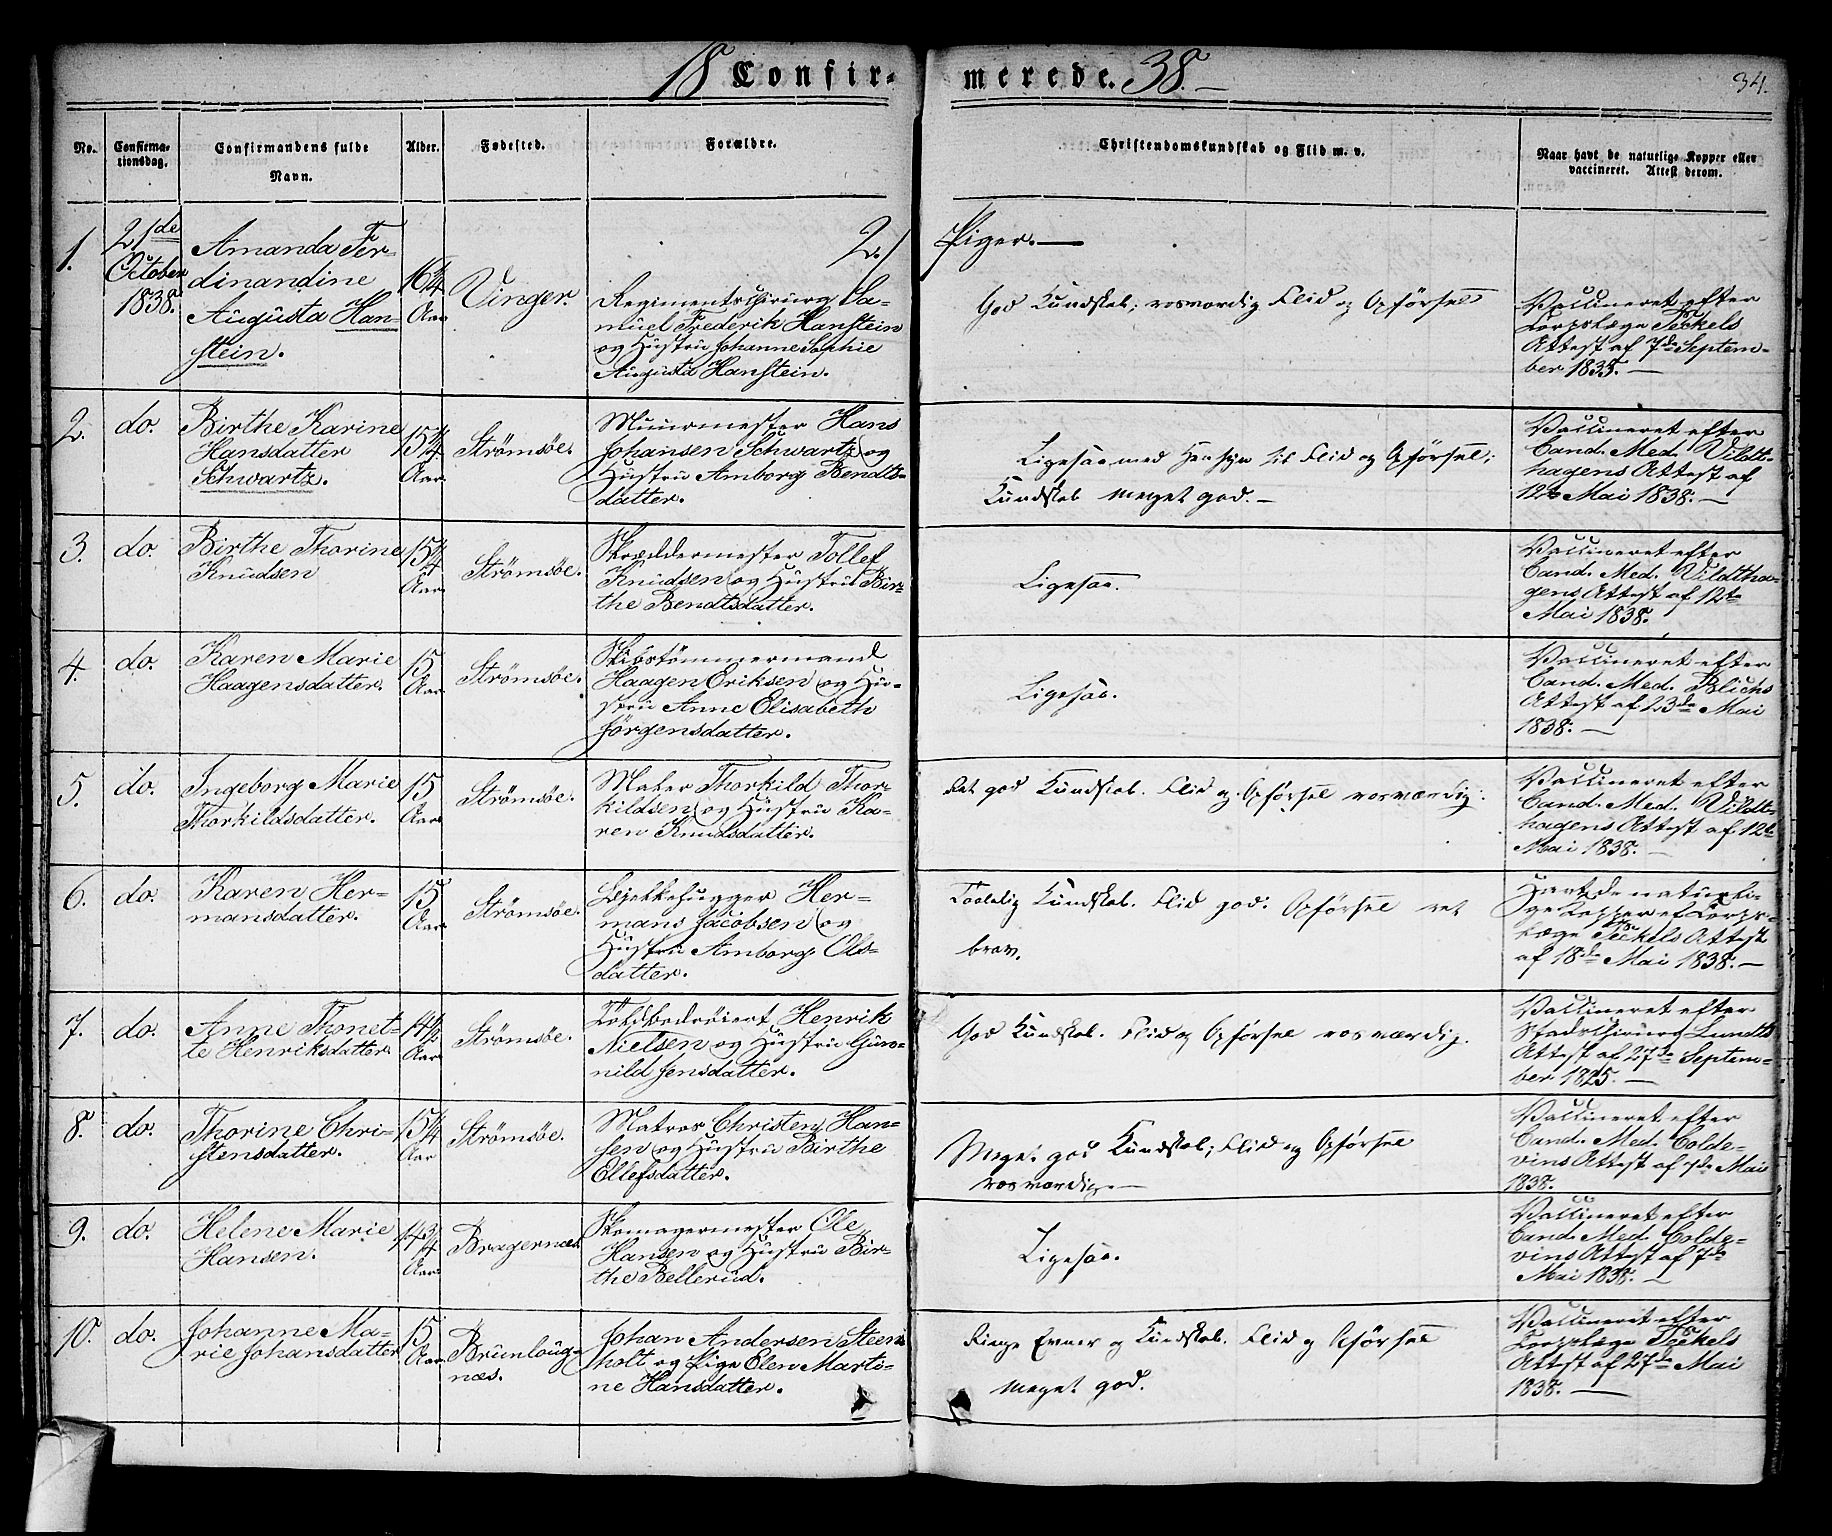 18 Confirmerede. 38.
34.
No.
Confirmationsdag.
Confirmandens fulde Navn.
Alder.
Fødested.
Forældre.
Christendomskundskab og Flid m. v.
Naar havt de naturlige Kopper eller vaccineret. Attest derom.
2.) Piger.
1.
21de
October
1838.
Amanda Fer-
dinandine
Augusta Han-
stein.
16 1/4
Aar
Vinger.
Regimentschirurg Sa-
muel Frederik Hanstein
og Hustru Johanne Sophie
Augusta Hanstein.
God Kundskab, rosværdig Flid og Opførsel
Vaccineret efter
Corpslæge Teckels
Attest af 7de Septem-
ber 1835.
2.
do.
Birthe Karine
Hansdatter
Schwartz.
15 1/4
Aar
Strømsøe.
Muurmester Hans
Johansen Schwartz og
Hustru Amborg Bendts-
datter.
Ligesaa med Hensyn til Flid og Opførsel;
Kundskab meget god.
Vaccineret efter
Cand. Med. Vildt-
hagens Attest af
12te Mai 1838.
3.
do.
Birthe Thorine
Knudsen
15 1/4
Aar
Strømsøe.
Skræddermester Tollef
Knudsen og Hustru Bir-
the Bendtsdatter.
Ligesaa.
Vaccineret efter
Cand. Med. Vildtha-
gens Attest af 12te
Mai 1838.
4.
do.
Karen Marie
Haagensdatter.
15
Aar
Strømsøe.
Skibstømmermand
Haagen Eriksen og Hu-
stru Anne Elisabeth
Jørgensdatter.
Ligesaa.
Vaccineret efter
Cand. Med. Blichs
Attest af 23de Mai
1838.
5.
do.
Ingeborg Marie
Thorkildsdatter.
15
Aar
Strømsøe.
Maler Thorkild Thor-
kildsen og Hustru Ka-
ren Knudsdatter.
Ret god Kundskab. Flid og Opførsel rosværdig.
Vaccineret efter
Cand. Med. Vildt-
hagens Attest af 12te
Mai 1838.
6.
do.
Karen Her-
mansdatter.
15
Aar
Strømsøe.
Bjelkehugger Her-
mans Jacobsen og
Hustru Amborg Ols-
datter.
Taalelig Kundskab. Flid god. Opførsel ret
brav.
Havt de naturli-
ge Kopper ef. Corps-
læge Teckels Attest
af 18de Mai 1838.
7.
do.
Anne Thonet-
te Henriksdatter
14 1/2
Aar
Strømsøe.
Toldbetient Henrik
Nielsen og Hustru Gun-
nild Jensdatter.
God Kundskab. Flid og Opførsel rosværdig.
Vaccineret efter
Stadschirurg Lundts
Attest af 27de Septem-
ber 1825.
8.
do.
Thorine Chri-
stensdatter.
15 1/4
Aar
Strømsøe.
Matros Christen Han-
sen og Hustru Birthe
Ellefsdatter.
Meget god Kundskab; Flid og Opførsel
rosværdig.
Vaccineret efter
Cand. Med. Colde-
vins Attest af 7de Mai
1838.
9.
do.
Helene Marie
Hansen.
14 3/4
Aar
Bragernæs.
Skomagermester Ole
Hansen og Hustru Bir-
the Bellerud.
Ligesaa.
Vaccineret efter
Cand. Med. Colde-
vins Attest af 7de
Mai 1838.
10.
do.
Johanne Ma-
rie Johansdatter
15
Aar
Brunlaug-
næs.
Johan Andersen Steen-
holt og Pige Elen Marti-
ne Hansdatter.
Ringe Evner og Kundskab. Flid og Opførsel
meget god.
Vaccineret efter
Corpslæge Teckels
Attest af 27de Mai
1838.